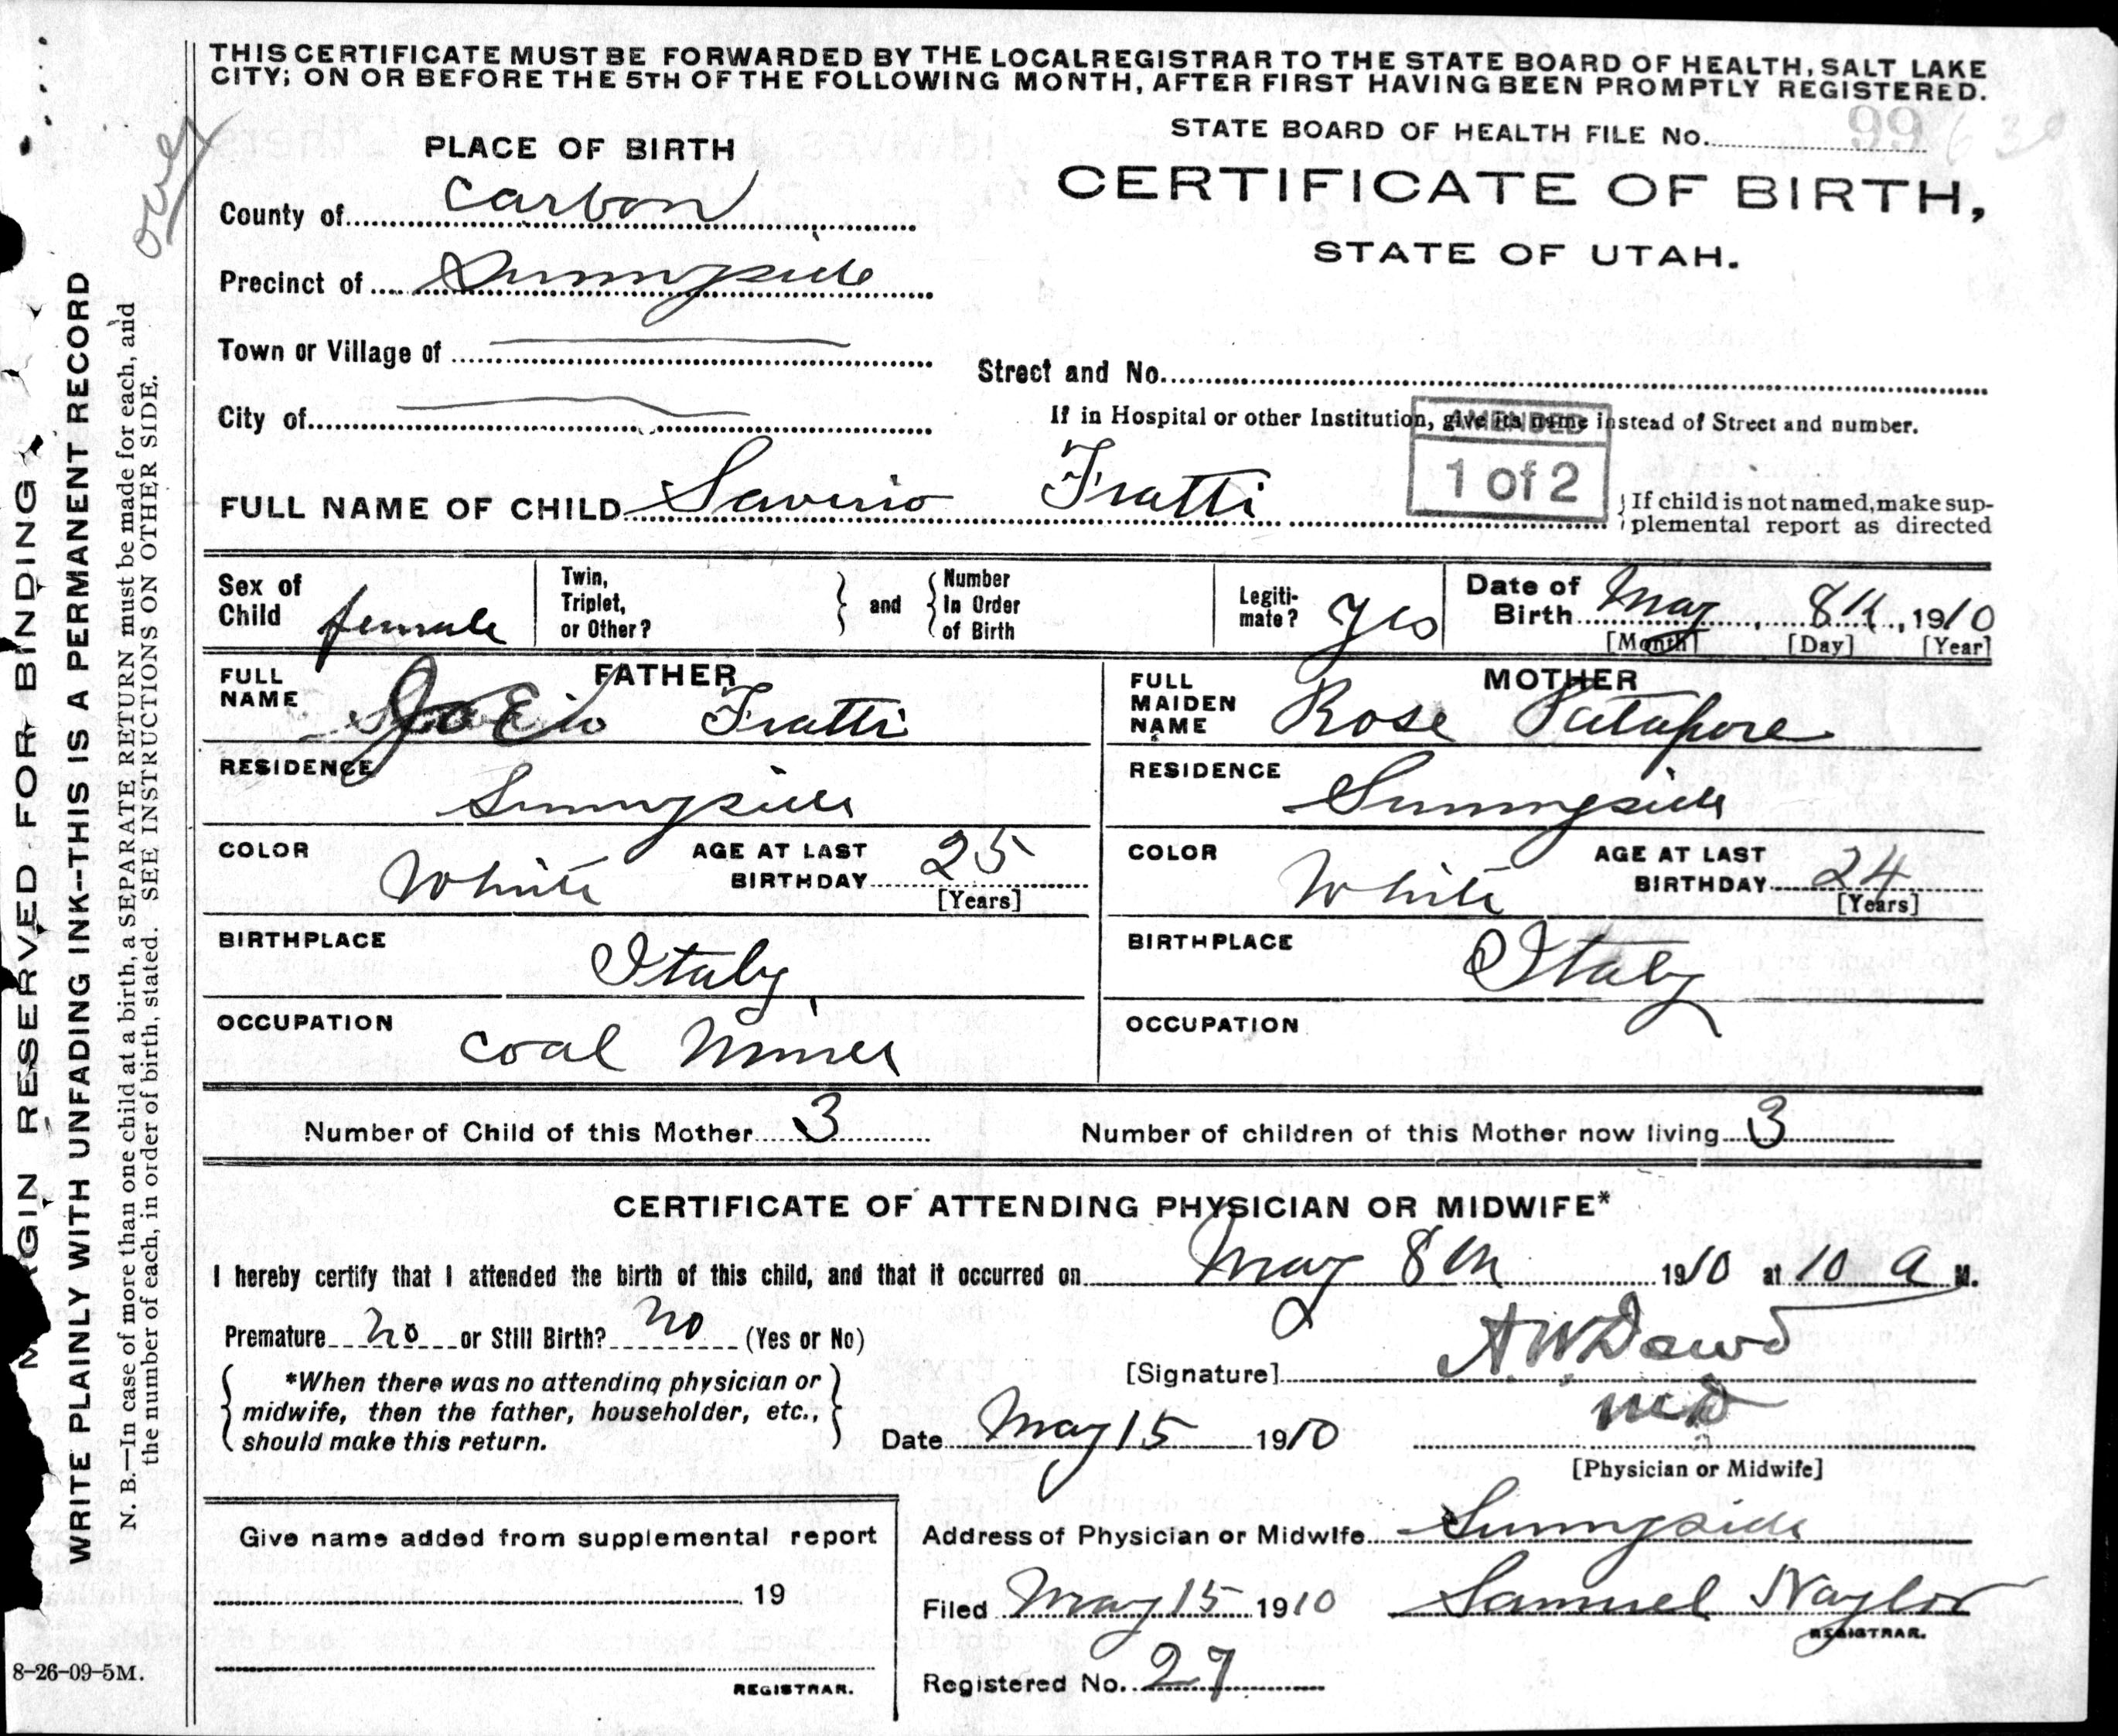 THIS CERTIFICATE MUST BE FORWARDED BY THE LOCAL REGISTRAR TO THE STATE BOARD OF HEALTH, SALT LAKE
CITY; ON OR BEFORE THE 5TH OF THE FOLLOWING MONTH, AFTER FIRST HAVING BEEN PROMPTLY REGISTERED.
over
PLACE OF BIRTH
STATE BOARD OF HEALTH FILE No. 99 630
CERTIFICATE OF BIRTH,
STATE OF UTAH.
County of Carbon
Precinct of Sunnyside
Town or Village of
City of
Street and No.
If in Hospital or other Institution, give its name instead of Street and number.
AMENDED
1 of 2
FULL NAME OF CHILD Saverio Fratti
If child is not named, make sup-
plemental report as directed
Sex of Child female
Twin, Triplet, or Other?
and
Number In Order of Birth
Legiti-mate? Yes
Date of Birth May 8th, 1910
[Month] [Day] [Year]
FATHER
FULL NAME Fratti
RESIDENCE Sunnyside
COLOR White
AGE AT LAST BIRTHDAY 25
[Years]
BIRTHPLACE Italy
OCCUPATION Coal Miner
MOTHER
FULL MAIDEN NAME Rose Patapore
RESIDENCE Sunnyside
COLOR White
AGE AT LAST BIRTHDAY 24
[Years]
BIRTHPLACE Italy
OCCUPATION
Number of Child of this Mother 3
Number of children of this Mother now living 3
CERTIFICATE OF ATTENDING PHYSICIAN OR MIDWIFE*
I hereby certify that I attended the birth of this child, and that it occurred on May 8th 1910 at 10 a M.
Premature no or Still Birth? no (Yes or No)
*When there was no attending physician or
midwife, then the father, householder, etc.,
should make this return.
[Signature] A. W. Dowd
MD
Date May 15 1910
[Physician or Midwife]
Give name added from supplemental report
19
REGISTRAR.
Address of Physician or Midwife Sunnyside
Filed May 15 1910 Samuel Naylor
REGISTRAR.
Registered No. 27
MARGIN RESERVED FOR BINDING
WRITE PLAINLY WITH UNFADING INK--THIS IS A PERMANENT RECORD
N. B.—In case of more than one child at a birth, a SEPARATE RETURN must be made for each, and
the number of each, in order of birth, stated. SEE INSTRUCTIONS ON OTHER SIDE.
8-26-09-5M.